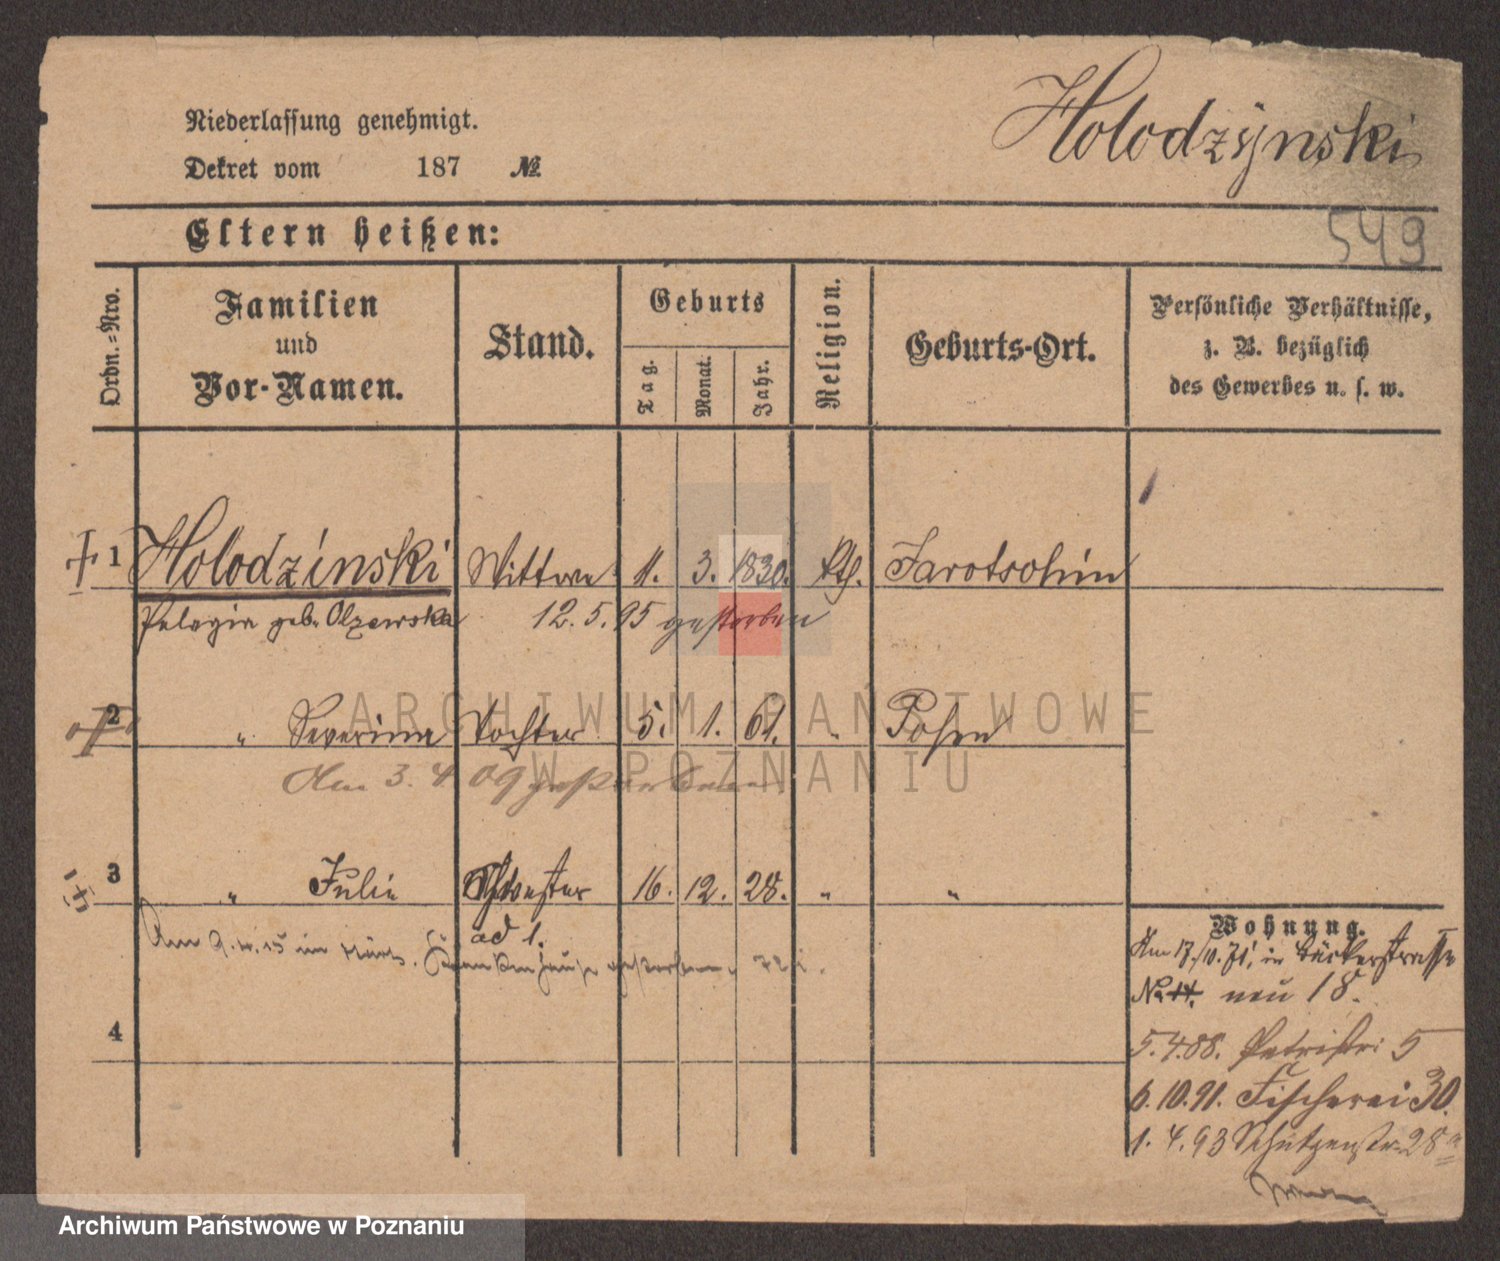 Holodzÿnski
Niederlassung genehmigt.
Dekret vom 187 №
Eltern heißen:
549
Ordn.-Nro.
Familien
und
Vor-Namen.
Stand.
Geburts
Tag.
Monat.
Jahr.
Religion.
Geburts-Ort.
Persönliche Verhältnisse,
z. B. bezüglich
des Gewerbes u. s. w.
1 Holodzinski Wittwe 11. 3. 1830. Kth. Jarotschin
Pelagia geb. Olzewska 12.5.95 gestorben
2 " Severina Tochter 5. 1. 61. " Posen
Am 3. 4. 09 gestorben
3 " Julie Schwester 16. 12. 28. " "
ad 1.
Am 9.4.15 im Krankenhause gestorben
4
Wohnung.
Am 17./10.71, in Bäckerstrasse
No 14. neu 18.
5.4.88. Petristr: 5
6.10.91. Fischerei 30.
1.4.93 Schützenstr. 28a
ARCHIWUM PAŃSTWOWE
W POZNANIU
Archiwum Państwowe w Poznaniu